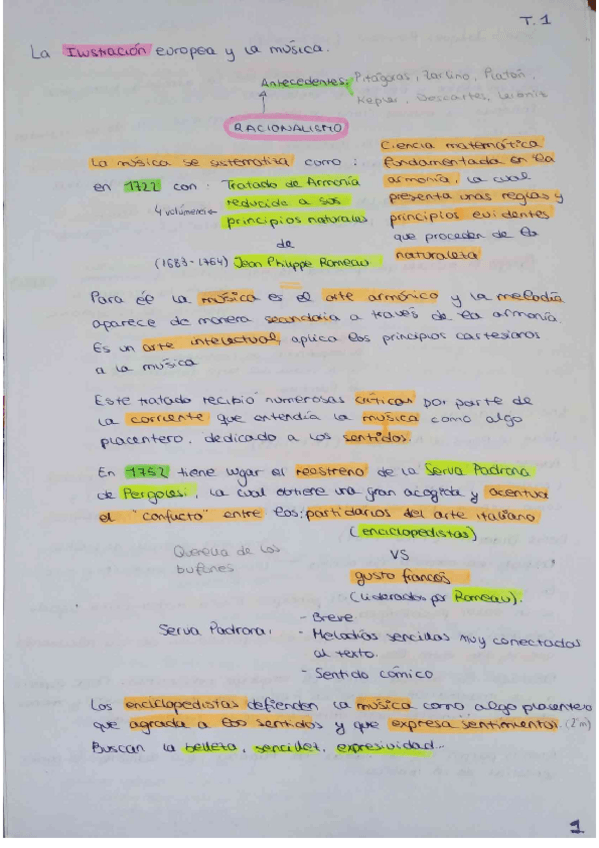 T. 1
La Ilustración europea y la música.
Antecedentes: Pitágoras, Zarlino, Platón,
Kepler, Descartes, Leibniz
RACIONALISMO
La música se sistematiza como:
en 1722 con: Tratado de Armonía
4 volúmenes reducida a sus
principios naturales
de
(1683-1764) Jean Philippe Rameau
Ciencia matemática
fundamentada en la
armonía, la cual
presenta unas reglas y
principios evidentes
que proceden de la
naturaleza
Para él la música es el arte armónico y la melodía
aparece de manera secundaria a través de la armonía.
Es un arte intelectual, aplica los principios cartesianos
a la música
Este tratado recibió numerosas críticas por parte de
la corriente que entendía la música como algo
placentero, dedicado a los sentidos.
En 1752 tiene lugar el reestreno de la Serva Padrona
de Pergolesi, la cual obtiene una gran acogida y acentua
el "conflicto" entre los: partidarios del arte italiano
(enciclopedistas)
Querella de los
bufones
VS
gusto francés
(liderados por Rameau).
Serva Padrona:
- Breve
- Melodías sencillas muy conectadas
al texto.
- Sentido cómico
Los enciclopedistas defienden la música como algo placentero
que agrada a los sentidos y que expresa sentimientos.
Buscan la belleza, sencillez, expresividad...
1